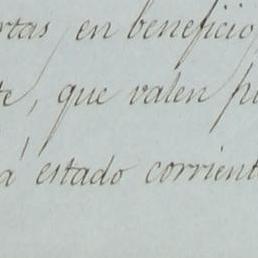 rtas, en beneficio,
te, que valen p
á estado corrient